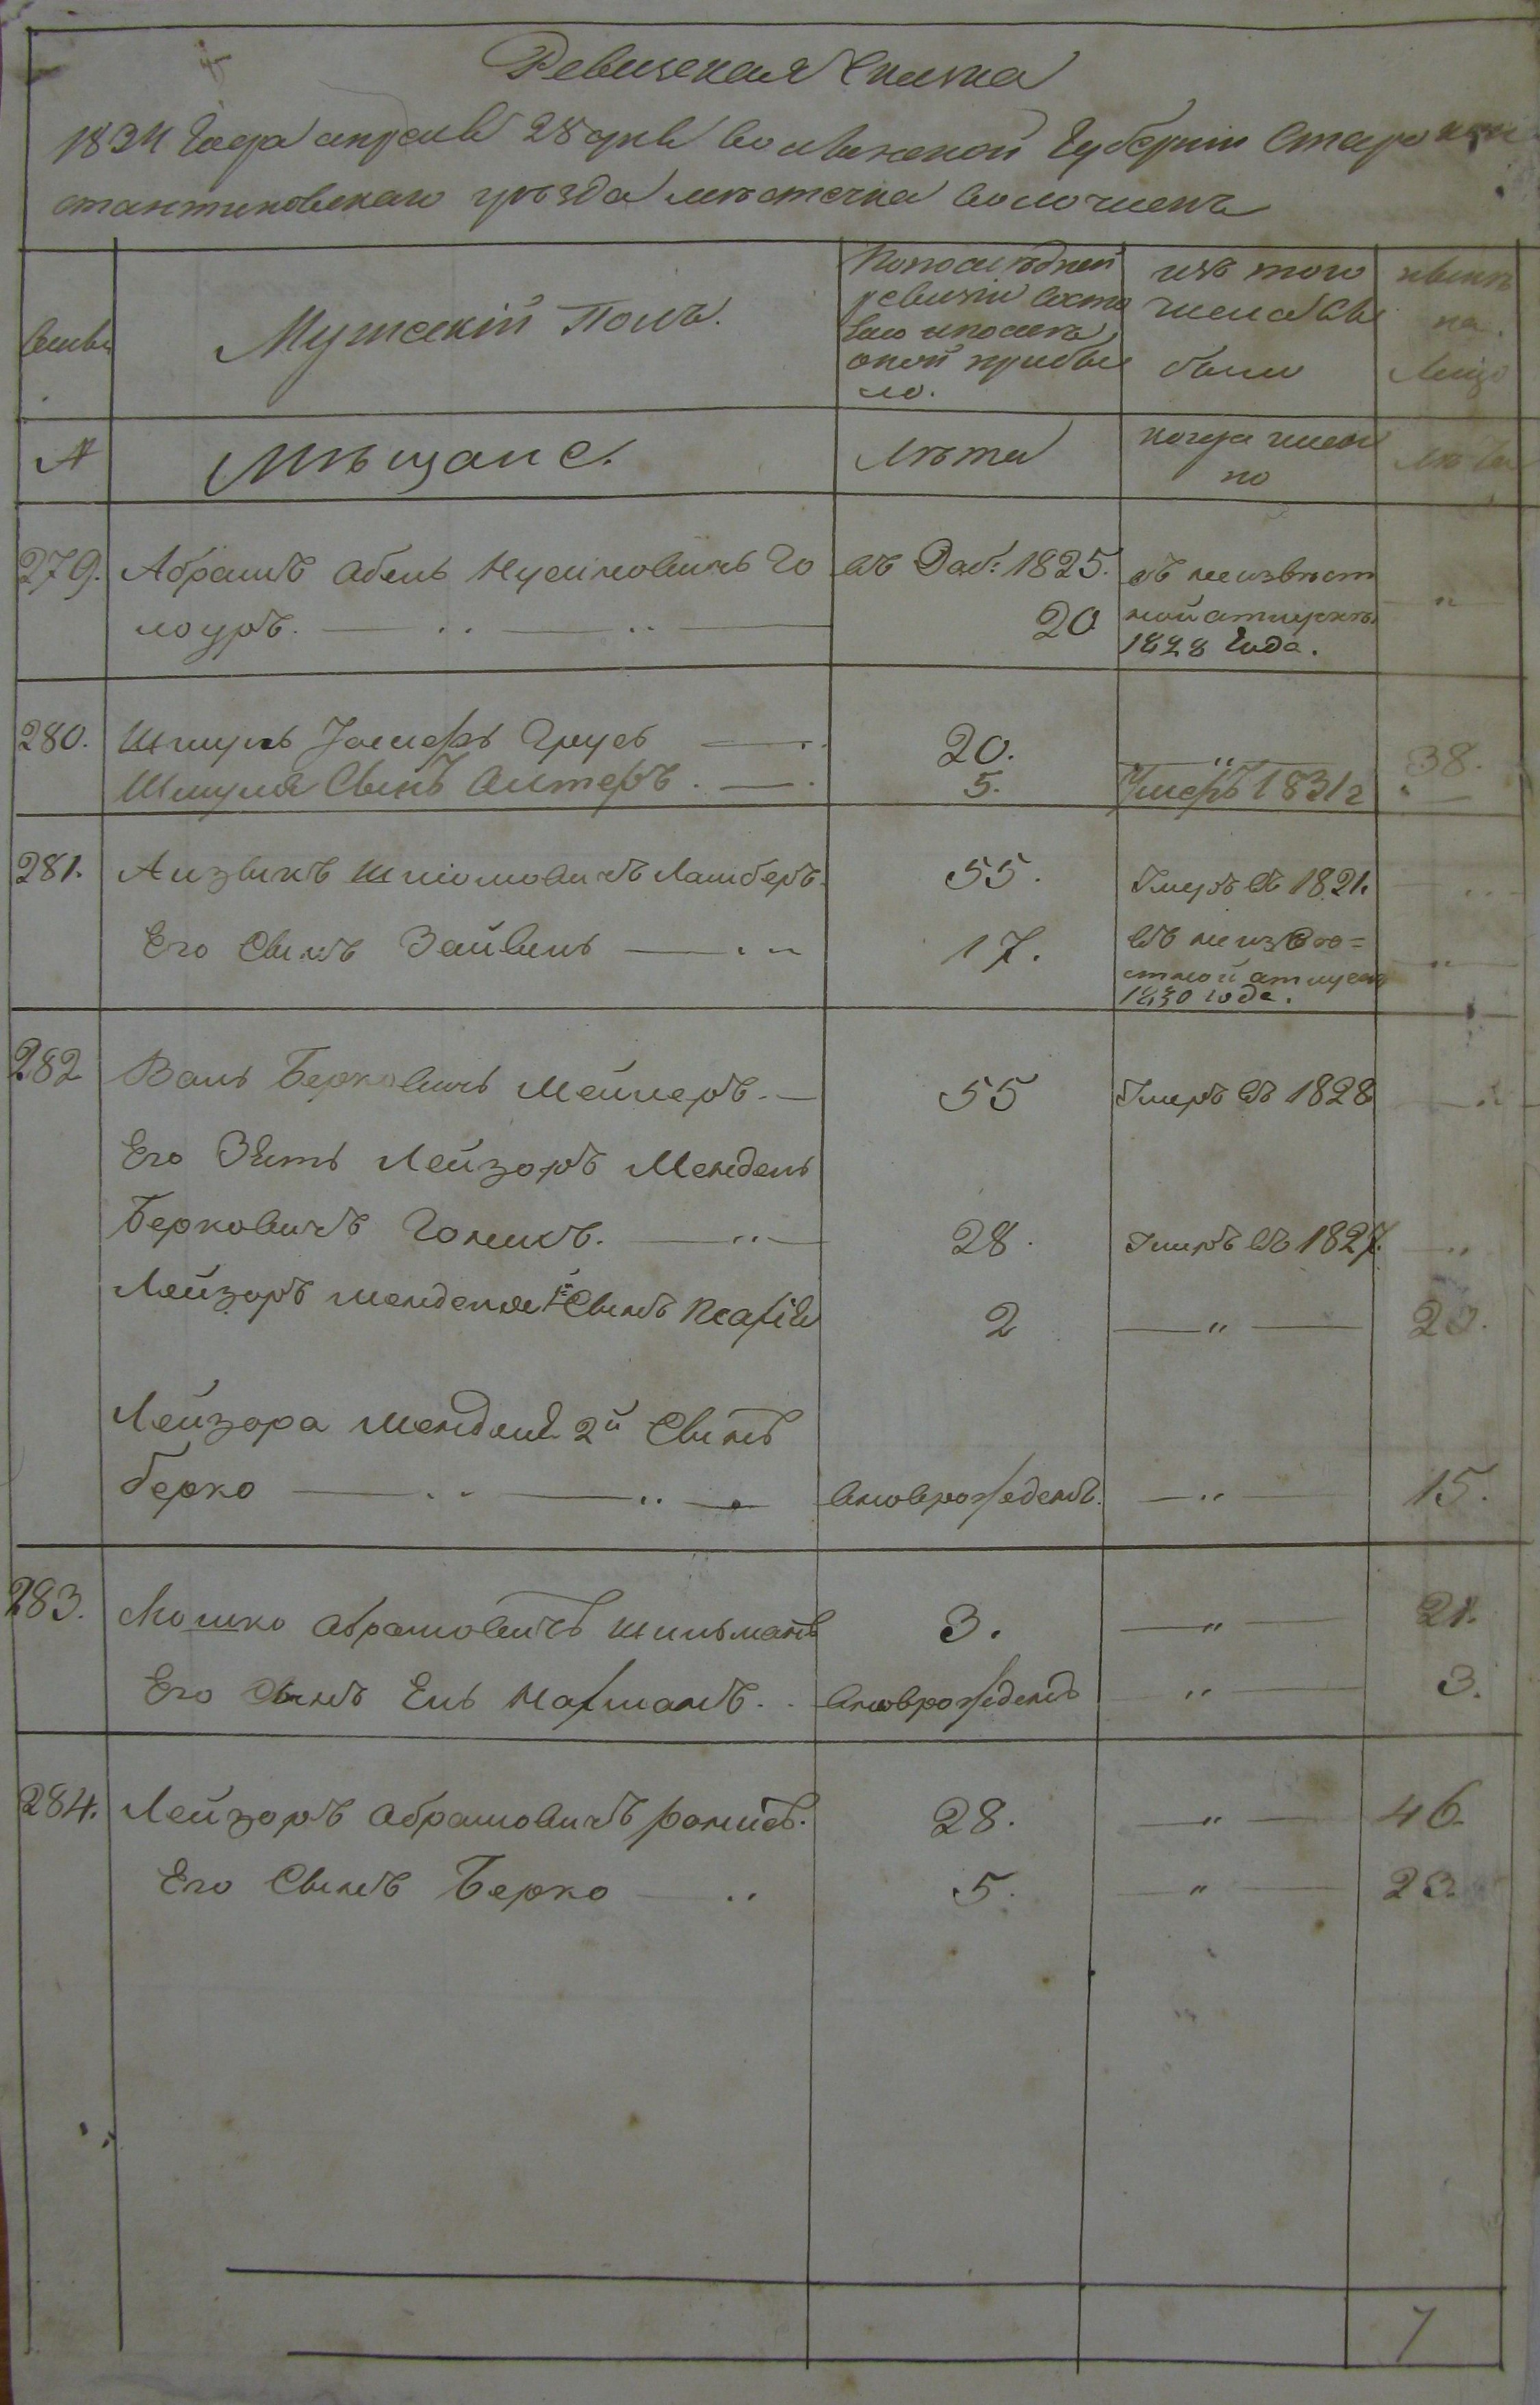 Ревизская Сказка
1834 Года апреля 28 дня Волынской Губернии Старокон
стантиновскаго уѣзда мѣстечка Волочискъ
Семьи
Мужескій Полъ.
По последней
ревизіи состо
яло и после
оной прибы
ло.
изъ того
числа вы
было
нынѣ
на
Лицо
А
Мѣщане.
Лѣта
когда имен
но
Лѣта
279. Абрамъ Абель Нусимовичъ Го въ Доб: 1825. въ неизвѣст
лоуръ. 20 ной отлучкѣ "
1828 Года.
280. Шмуль Іосифъ Грусъ 20. " 38.
Шмуля Сынъ Алтеръ. 5. Умеръ 1831 г
281. Аизыкъ Шліомовичъ Ламберъ. 55. Умеръ въ 1821.
Его Сынъ Зейвель 17. въ неизвѣ=
стной отлучкѣ
1830 года.
282 Валь Берковичъ Мейлеръ. 55 Умеръ въ 1828
Его Зять Лейзоръ Мендель
Берковичъ Голикъ. 28. Умеръ въ 1827.
Лейзоръ Менделя 1й Сынъ 2 " 20.
Лейзора Менделя 2й Сынъ
Берко вновърожденъ. " 15.
283. Мошко Абрамовичъ Шильманъ 3. " 21.
Его Сынъ Ель Нахманъ. вновърожденъ " 3.
284. Лейзоръ Абрамовичъ 28. " 46.
Его Сынъ Берко 5. " 23.
7